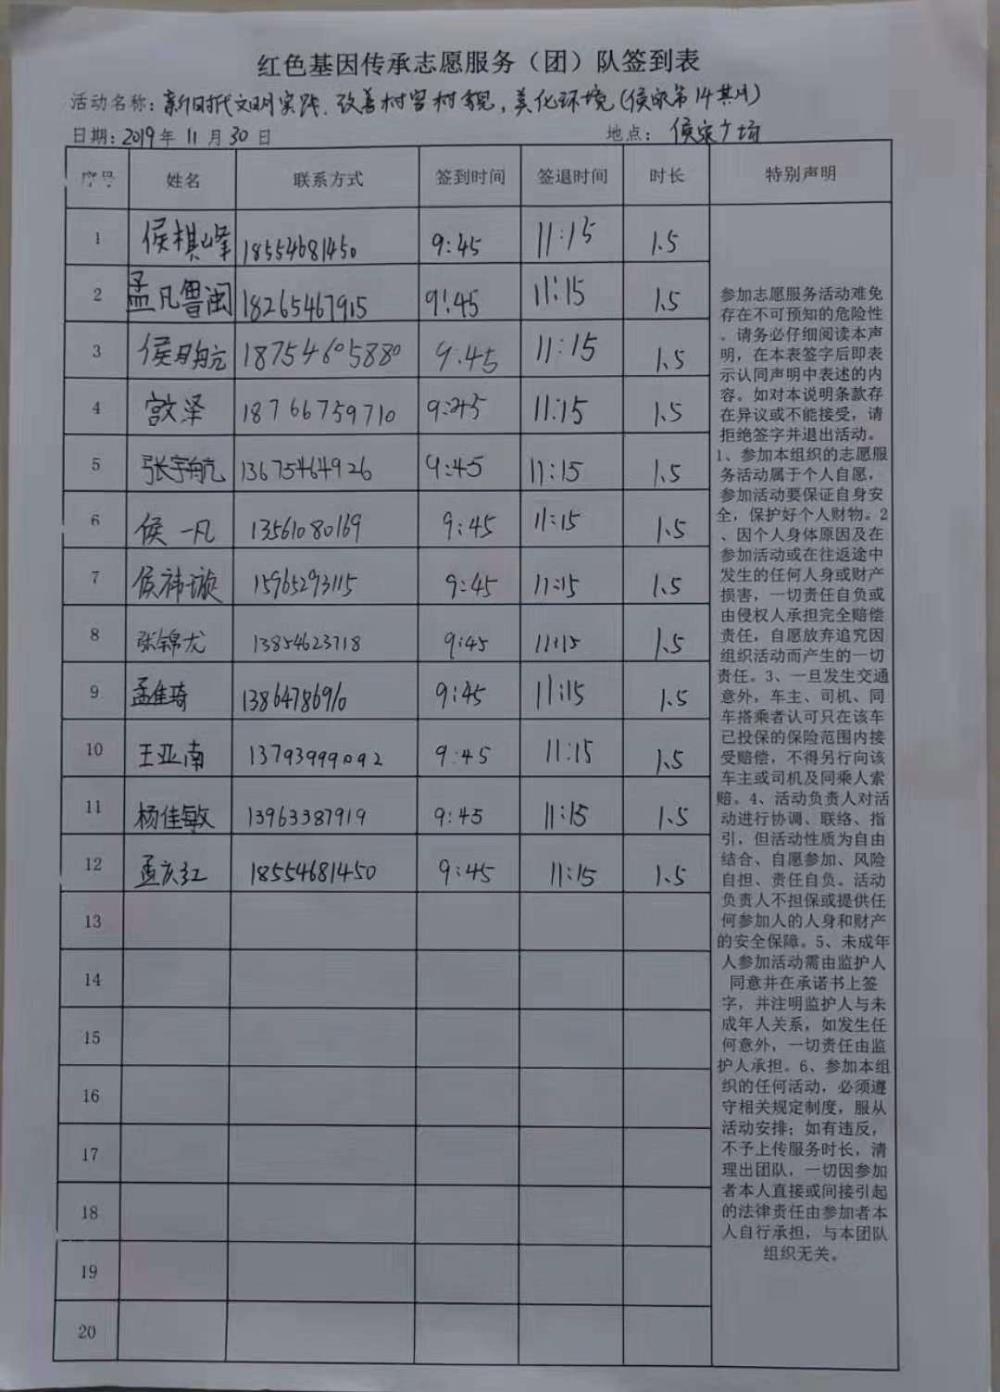 红色基因传承志愿服务（团）队签到表
活动名称：新时代文明实践、改善村容村貌，美化环境（侯家第14其月）
日期：2019年11月30日 地点：侯家广场
序号 姓名 联系方式 签到时间 签退时间 时长 特别声明
1 侯棋峰 18554681450 9:45 11:15 1.5
2 孟凡鲁闽 18265467915 9:45 11:15 1.5
3 侯翔航 18754605880 9:45 11:15 1.5
4 宫政泽 18766759710 9:45 11:15 1.5
5 张宇航 13675464926 9:45 11:15 1.5
6 侯一凡 13561080169 9:45 11:15 1.5
7 侯祎璇 15965293115 9:45 11:15 1.5
8 张锦龙 13854623718 9:45 11:15 1.5
9 孟佳琦 13864786910 9:45 11:15 1.5
10 王亚南 13793999092 9:45 11:15 1.5
11 杨佳敏 13963387919 9:45 11:15 1.5
12 孟庆红 18554681450 9:45 11:15 1.5
13
14
15
16
17
18
19
20
参加志愿服务活动难免
存在不可预知的危险性
。请务必仔细阅读本声
明，在本表签字后即表
示认同声明中表述的内
容。如对本说明条款存
在异议或不能接受，请
拒绝签字并退出活动。
1、参加本组织的志愿服
务活动属于个人自愿，
参加活动要保证自身安
全，保护好个人财物。2
、因个人身体原因及在
参加活动或在往返途中
发生的任何人身或财产
损害，一切责任自负或
由侵权人承担完全赔偿
责任，自愿放弃追究因
组织活动而产生的一切
责任。3、一旦发生交通
意外，车主、司机、同
车搭乘者认可只在该车
已投保的保险范围内接
受赔偿，不得另行向该
车主或司机及同乘人索
赔。4、活动负责人对活
动进行协调、联络、指
引，但活动性质为自由
结合、自愿参加、风险
自担、责任自负。活动
负责人不担保或提供任
何参加人的人身和财产
的安全保障。5、未成年
人参加活动需由监护人
同意并在承诺书上签
字，并注明监护人与未
成年人关系，如发生任
何意外，一切责任由监
护人承担。6、参加本组
织的任何活动，必须遵
守相关规定制度，服从
活动安排；如有违反，
不予上传服务时长，清
理出团队，一切因参加
者本人直接或间接引起
的法律责任由参加者本
人自行承担，与本团队
组织无关。